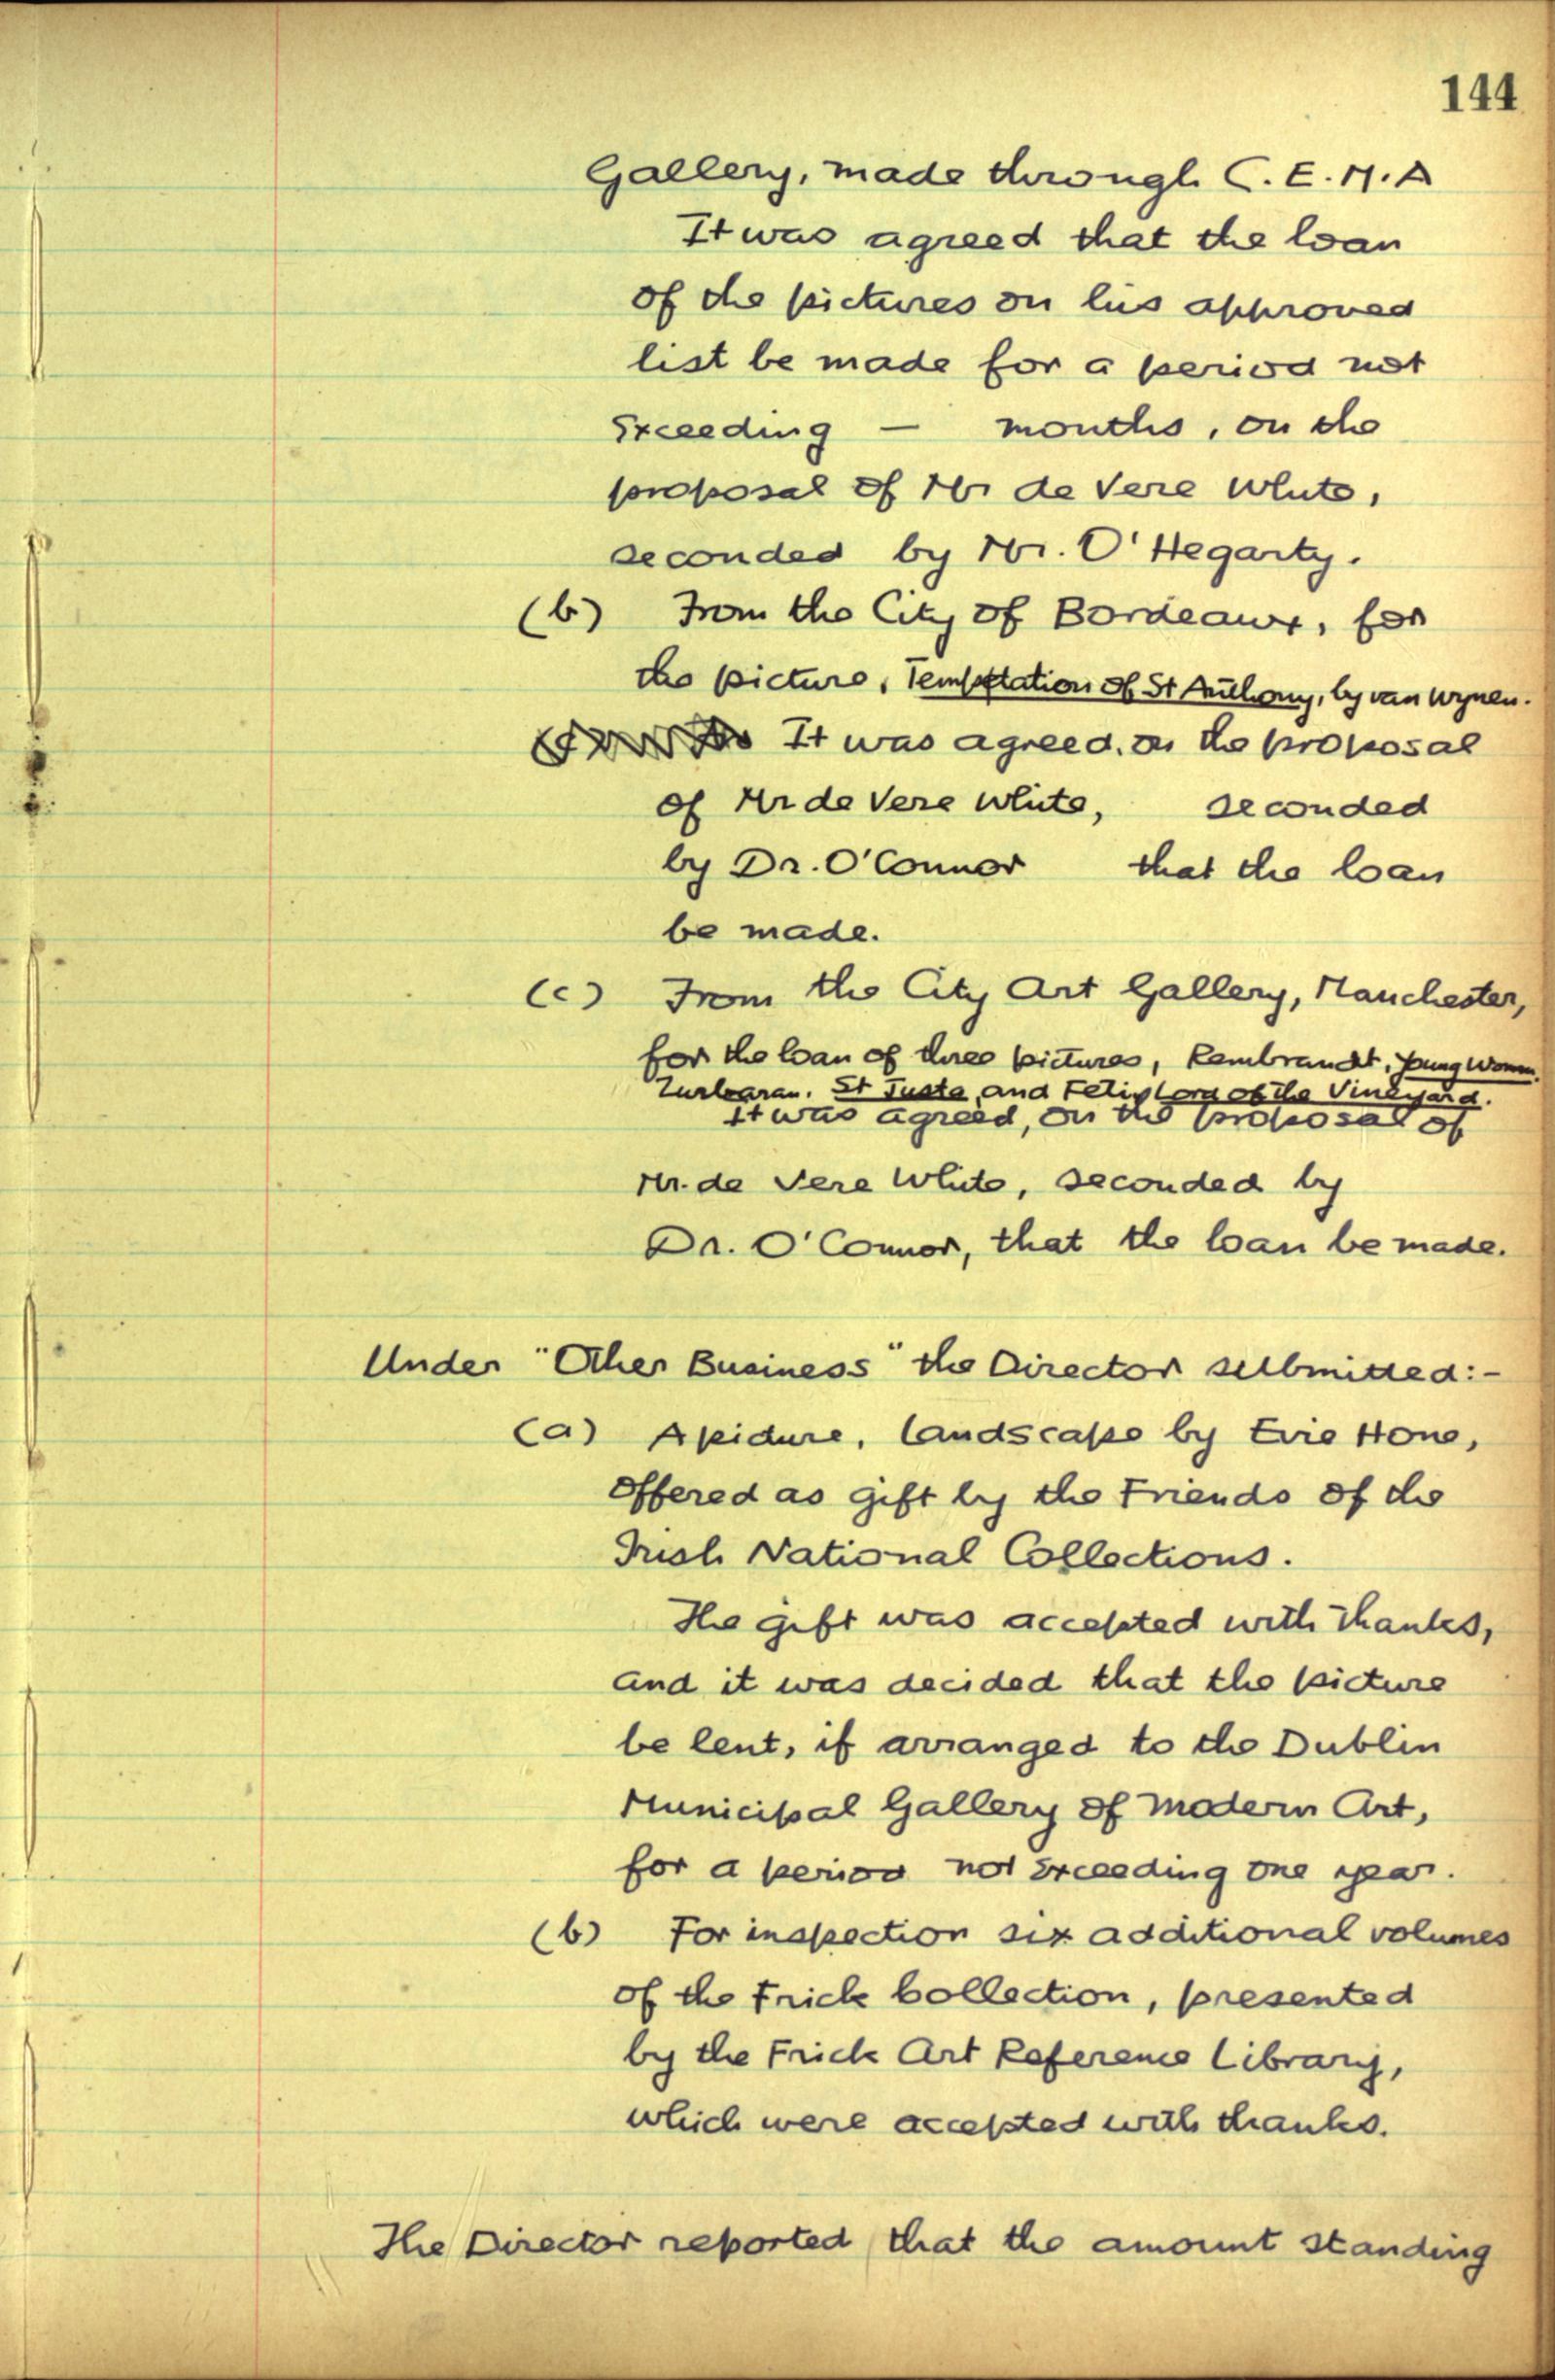 144
Gallery, made through C.E.M.A
It was agreed that the loan
of the pictures on his approved
list be made for a period not
Exceeding — months, on the
proposal of Mr de Vere White,
seconded by Mr. O'Hegarty.
(b) From the City of Bordeaux, for
the picture, Temptation of St Anthony, by van Wynen.
It was agreed, on the proposal
of Mr de Vere White, seconded
by Dr. O'Connor that the loan
be made.
(c) From the City Art Gallery, Manchester,
for the loan of three pictures, Rembrandt, Young Woman.
Zurbaran. St Justa, and Fetis Lord of the Vineyard.
It was agreed, on the proposal of
Mr. de Vere White, seconded by
Dr. O'Connor, that the loan be made.
Under "Other Business" the Director submitted:-
(a) A picture, Landscape by Evie Hone,
offered as gift by the Friends of the
Irish National Collections.
The gift was accepted with thanks,
and it was decided that the picture
be lent, if arranged to the Dublin
Municipal Gallery of Modern Art,
for a period not Exceeding one year.
(b) For inspection six additional volumes
of the Frick Collection, presented
by the Frick Art Reference Library,
which were accepted with thanks.
The Director reported that the amount standing